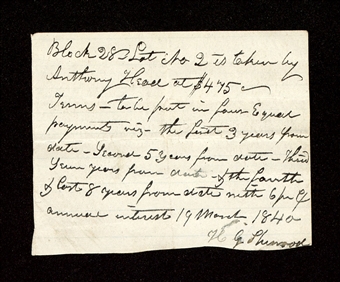 Block 28 Lot No 2 is taken by
Anthony Head at $475
Terms - to be put in four Equal
payments viz - the first 3 years from
date - Second 5 Years from date - Third
years from date - & the fourth
& last 8 years from date with 6 pr ct
annual interest 19 March 1840
H G Sherwood